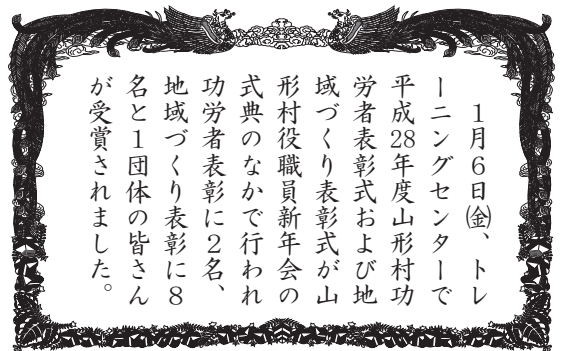 1月6日㈮、トレ
ーニングセンターで
平成28年度山形村功
労者表彰式および地
域づくり表彰式が山
形村役職員新年会の
式典のなかで行われ
功労者表彰に2名、
地域づくり表彰に8
名と1団体の皆さん
が受賞されました。